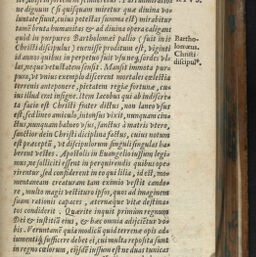 ne dignum (si quisquam miretur qua diuina vo-
luntate fiunt, cuius potestas summa est) mirabitur
tamē bruta humanitas & ad diuina opera caligans
quid in purpureo Bartholomæi pallio (fuit is è
Christi discipulis) euenisse proditum est, viginti
ac annos quibus in perpetuo fuit vsu neq; sordes vl-
las, neque vetustatem sensit. Mansit immota pur-
pura, vt vnius exemplo discerent mortales cælestia
terrenis anteponere, pietatem regia fortuna, cuius
illud erat insigne. Item Iacobus qui ab
ta facie est Christi frater dictus, non laneo vsus
est, sed lineo amiculo, intonsus vixit, nunquam
ctus, nunquam balneo vsus, sanctus à matris vtero,
sanctior dein Christi disciplina factus, cuius notum
est præceptū, vt discipulorum singuli singulas ha-
berent vestes. Apostolis in Euangelio iussum legi-
mus, ne solliciti essent in perquirendis quibus ope-
rirentur sed conderent in eo qui lilia, id est, mo-
mentaneam creaturam tam eximio vestit cando-
re, multo magis vestituro ipsos, quos ad imaginem
suam rationis capaces, æternaque vita destina-
tos condiderit. Quærite inquit primum regnum
Dei & iustitiā eius, & hæc omnia adijcietur vo-
bis. Verumtamē quia modica quid terrenæ opis ad-
iumēti sufficere debet ei, cui multa reposita sunt
in regno cælorum, eisdē iussum est ne duas tunicas
Bartho-
lomæum.
Christi
discipul⁹.